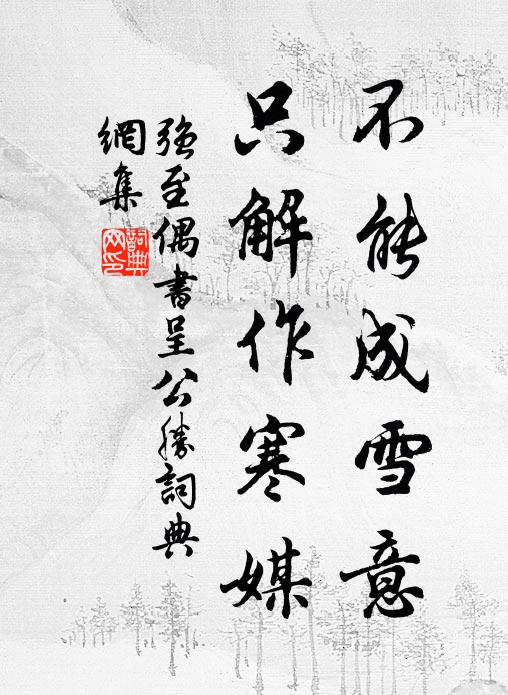 不能成雪意
只解作寒媒
強至偶書呈公勝詞典
網集
詞典
网印